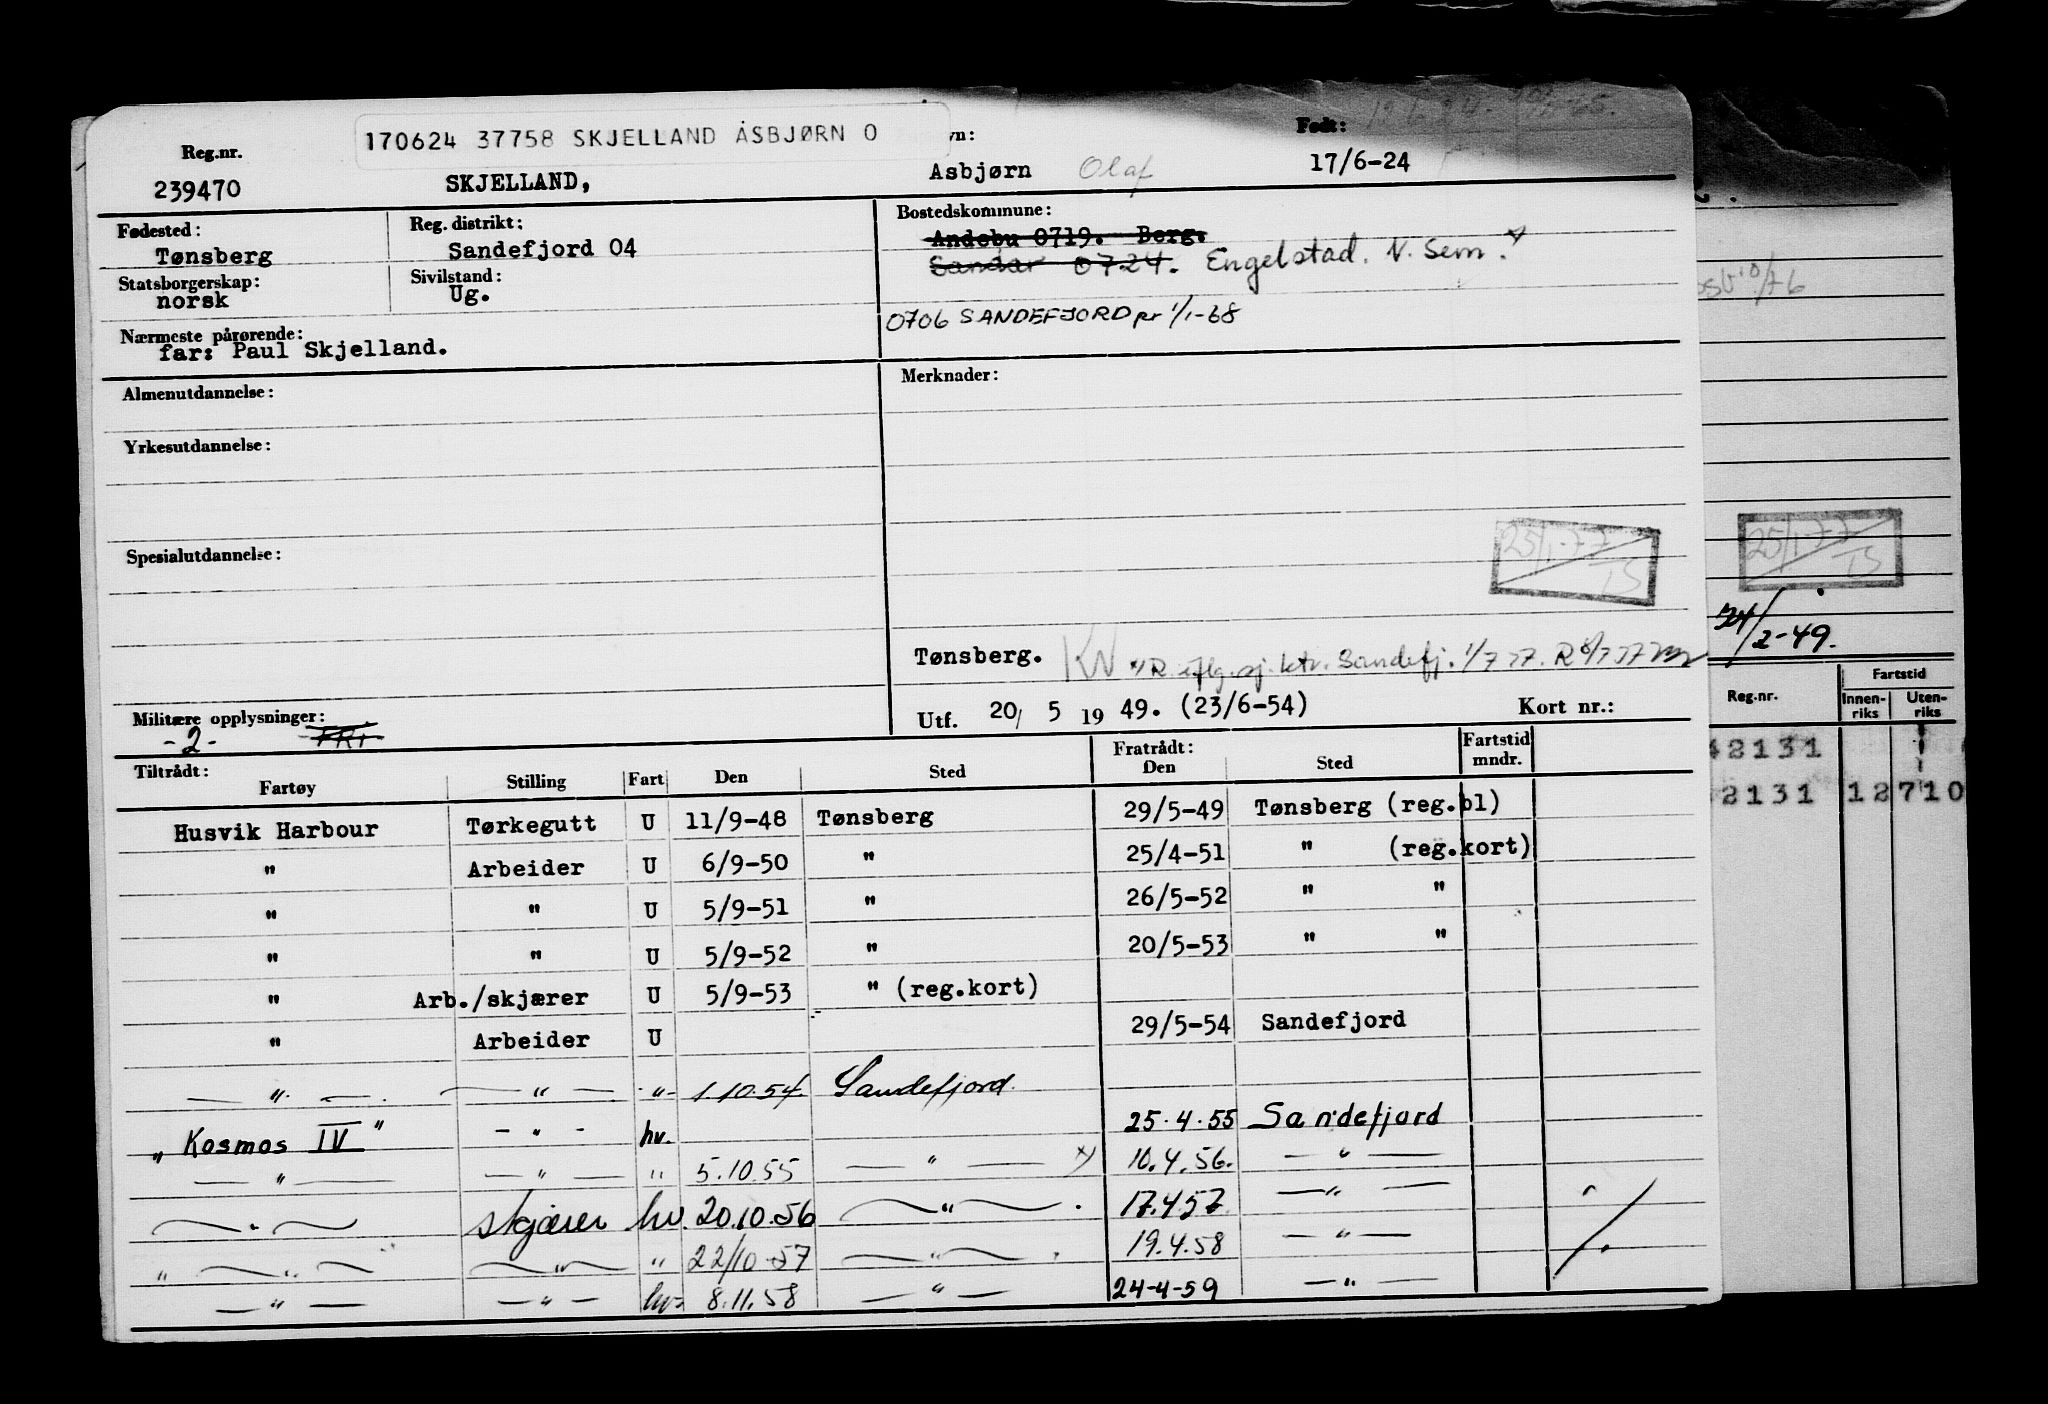 170624 37758 SKJELLAND ASBJØRN O
Reg.nr. vn: Født:
239470 SKJELLAND, Asbjørn Olaf 17/6-24
Fødested: Reg. distrikt: Bostedskommune:
Tønsberg Sandefjord 04 Andebu 0719. Berg.
Sandar 0724. Engelstad. N. Sem. x)
Statsborgerskap: Sivilstand:
norsk Ug.
0706 SANDEFJORD pr 1/1-68
Nærmeste pårørende:
far: Paul Skjelland.
Almenutdannelse: Merknader:
Yrkesutdannelse:
Spesialutdannelse:
25/1-77
IS
25/1-77
IS
/2-49.
Tønsberg. KN
Sandefj. 1/7 77.
Militære opplysninger:
-2- FRI
Utf. 20/ 5 19 49. (23/6-54) Kort nr.:
Reg.nr. Fartstid
Innen-riks Uten-riks
42131
2131 12 710
Tiltrådt: Fratrådt:
Fartøy Stilling Fart Den Sted Den Sted Fartstid mndr.
Husvik Harbour Tørkegutt U 11/9-48 Tønsberg 29/5-49 Tønsberg (reg.bl)
" Arbeider U 6/9-50 " 25/4-51 " (reg.kort)
" " U 5/9-51 " 26/5-52 " "
" " U 5/9-52 " 20/5-53 " "
" Arb./skjærer U 5/9-53 " (reg.kort)
" Arbeider U 29/5-54 Sandefjord
— " — — " — " 1.10.54 Sandefjord.
"Kosmos IV" - " - hv. 25.4.55 Sandefjord
— " — — " — " 5.10.55 — " — x) 10.4.56. — " —
— " — skjærer hv. 20.10.56 — " — . 17.4.57. — " —
" — " — — " — " 22/10-57 — " — . 19.4.58 — " —
— " — — " — hv. 8.11.58 — " — 24-4-59 — " —